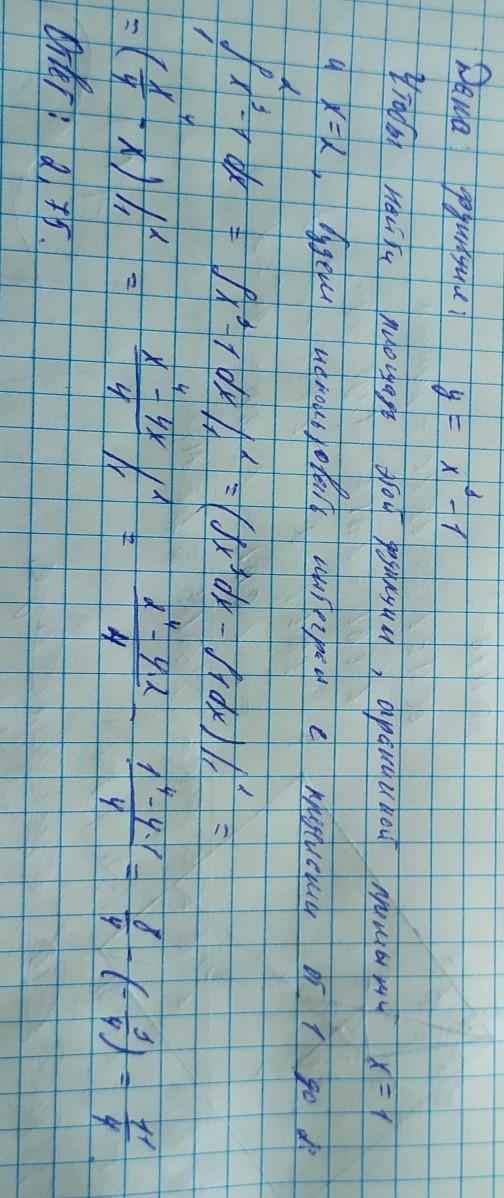 Дана функция: y = x³ - 1
Чтобы найти площадь этой функции, ограниченой прямыми x = 1
и x = 2, будем использовать интеграл с пределами от 1 до 2:
∫₁² x³ - 1 dx = ∫ x³ - 1 dx |₁² = (∫x³ dx - ∫1 dx) |₁² =
= (x⁴/4 - x) |₁² = (x⁴ - 4x)/4 |₁² = (2⁴ - 4·2)/4 - (1⁴ - 4·1)/4 = 8/4 - (-3/4) = 11/4
Ответ: 2,75.